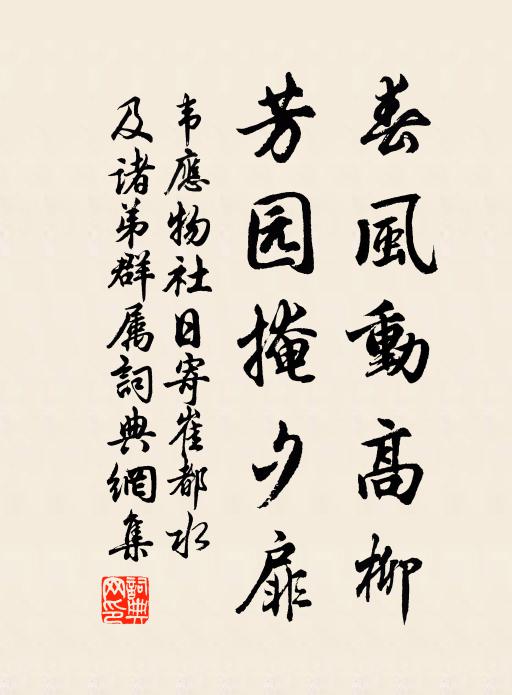 春風動高柳
芳园掩夕扉
韦應物社日寄崔都水
及諸弟群属詞典網集
詞典网印